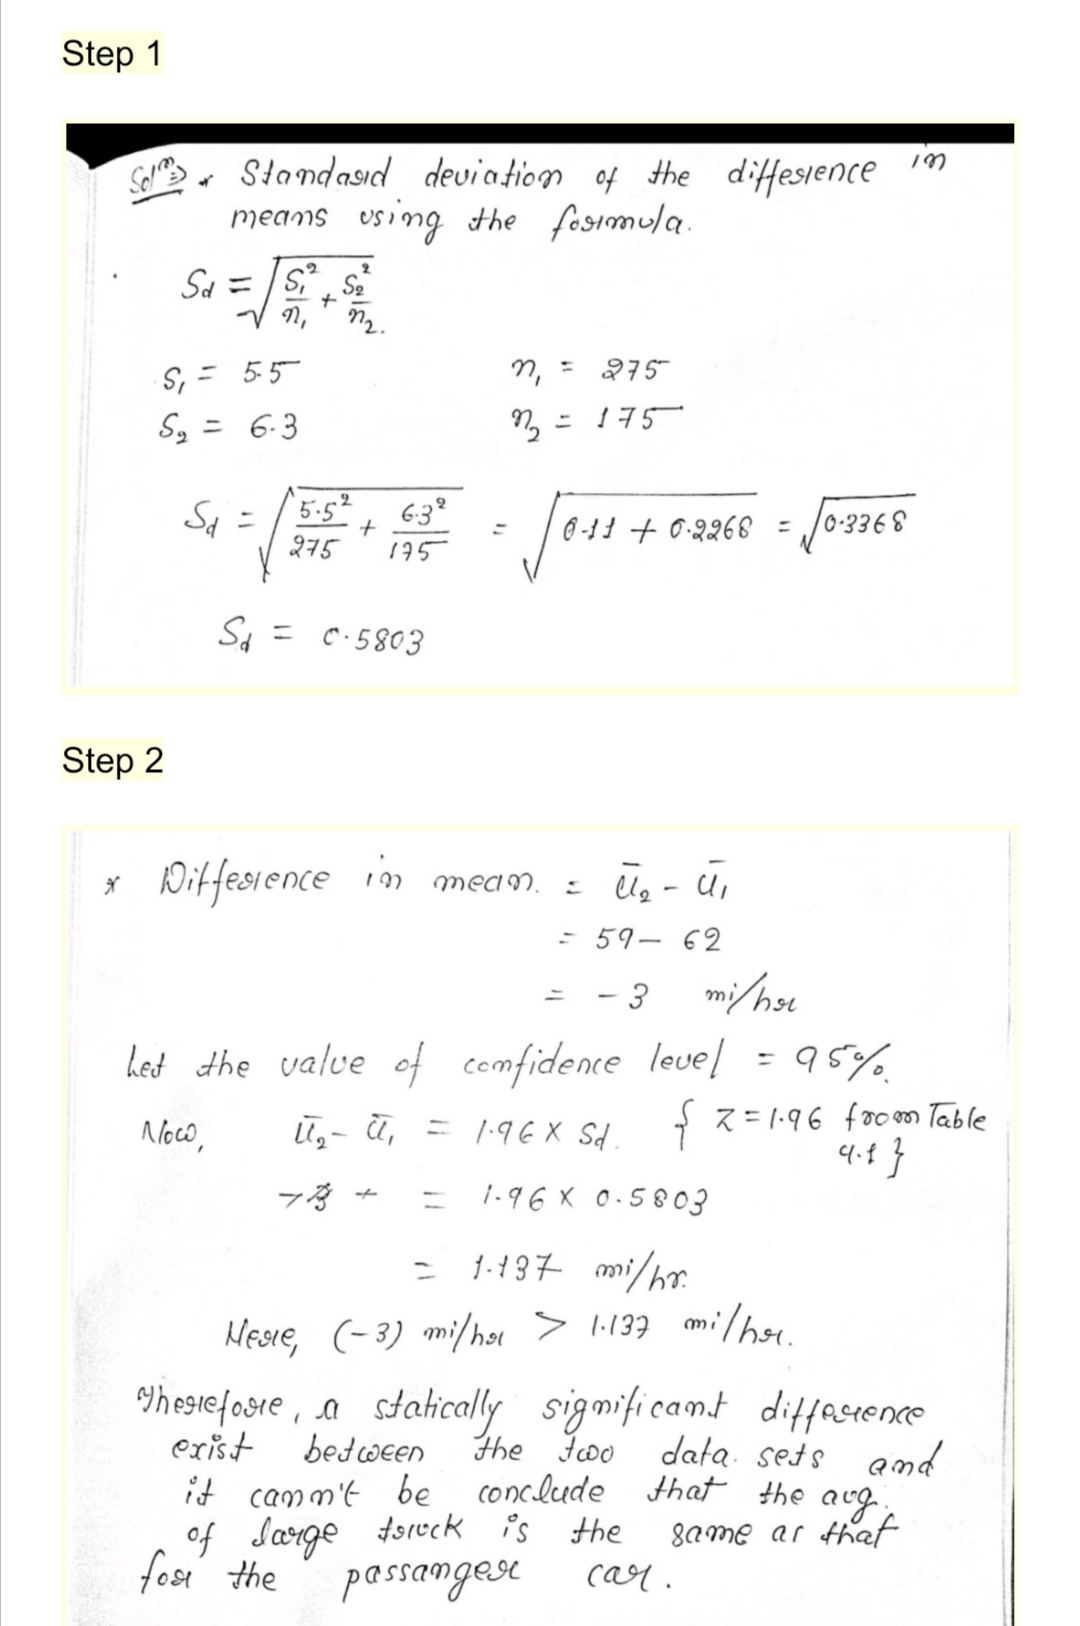 Step 1
Solⁿ⇒ * Standard deviation of the difference in
means using the formula.
Sd = √(S₁²/n₁ + S₂²/n₂.)
S₁ = 5.5 n₁ = 275
S₂ = 6.3 n₂ = 175
Sd = √(5.5²/275 + 6.3²/175) = √(0.11 + 0.2268) = √0.3368
Sd = 0.5803
Step 2
* Difference in mean. = ū₂ - ū₁
= 59 - 62
= - 3 mi/hr
Let the value of confidence level = 95%.
Now, ū₂ - ū₁ = 1.96 X Sd. { Z = 1.96 from Table
4.1 }
= 1.96 X 0.5803
= 1.137 mi/hr.
Here, (-3) mi/hr > 1.137 mi/hr.
Therefore, a statically significant difference
exist between the two data sets and
it cann't be conclude that the avg.
of large truck is the same as that
for the passanger car.